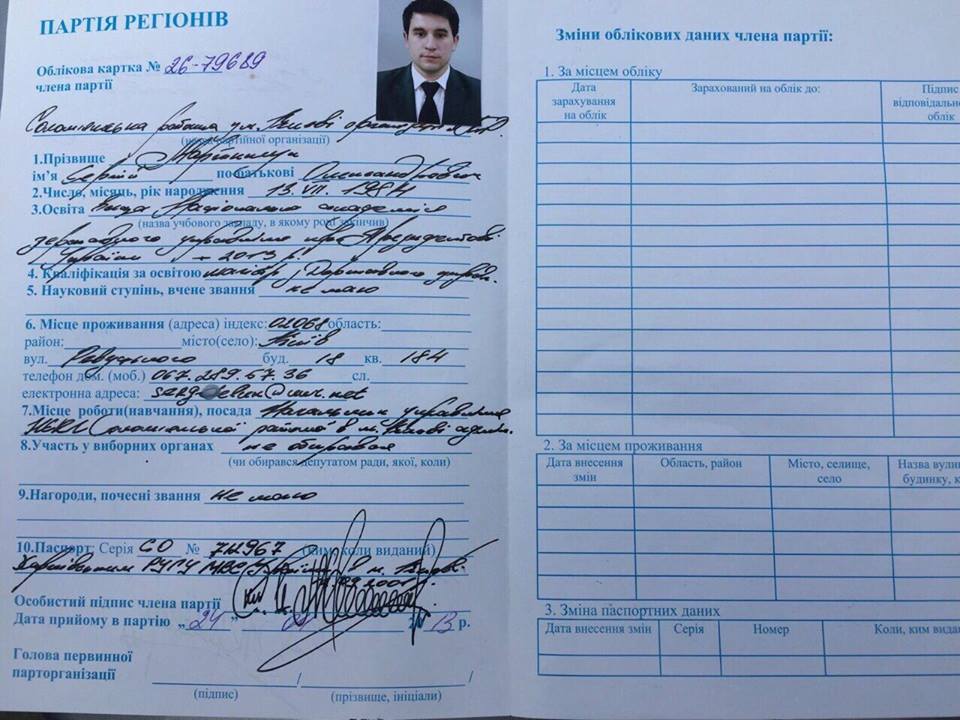 ПАРТІЯ РЕГІОНІВ
Облікова картка № 26-79689
члена партії
Солом'янська районна у м. Києві організація
(назва партійної організації)
1.Прізвище
ім’я Сергій по батькові Олександрович
2.Число, місяць, рік народження 13. VII. 1984
3.Освіта Вища Національна академія
(назва учбового закладу, в якому році закінчив)
державного управління при Президентові
України - 2013 р.
4. Кваліфікація за освітою магістр Державного управл.
5. Науковий ступінь, вчене звання не маю
6. Місце проживання (адреса) індекс: 02068 область:
район: місто(село): Київ
вул. Ревуцького буд. 18 кв. 184
телефон дом. (моб.) 067. 289. 57. 36 сл.
електронна адреса:
7.Місце роботи(навчання), посада Начальник управління
Солом'янської районної в м. Києві
8.Участь у виборних органах не обирався
(чи обирався депутатом ради, якої, коли)
9.Нагороди, почесні звання не маю
10.Паспорт: Серія СО № (ким, коли виданий)
Харківським РУГУ МВС в м. Києві
Особистий підпис члена партії
Дата прийому в партію „ 24 ” 13 р.
Голова первинної
парторганізації
(підпис) (прізвище, ініціали)
Зміни облікових даних члена партії:
1. За місцем обліку
Дата зарахування на облік
Зарахований на облік до:
Підпис відповідальн облік
2. За місцем проживання
Дата внесення змін
Область, район
Місто, селище, село
Назва вули будинку, к
3. Зміна паспортних даних
Дата внесення змін
Серія
Номер
Коли, ким вида